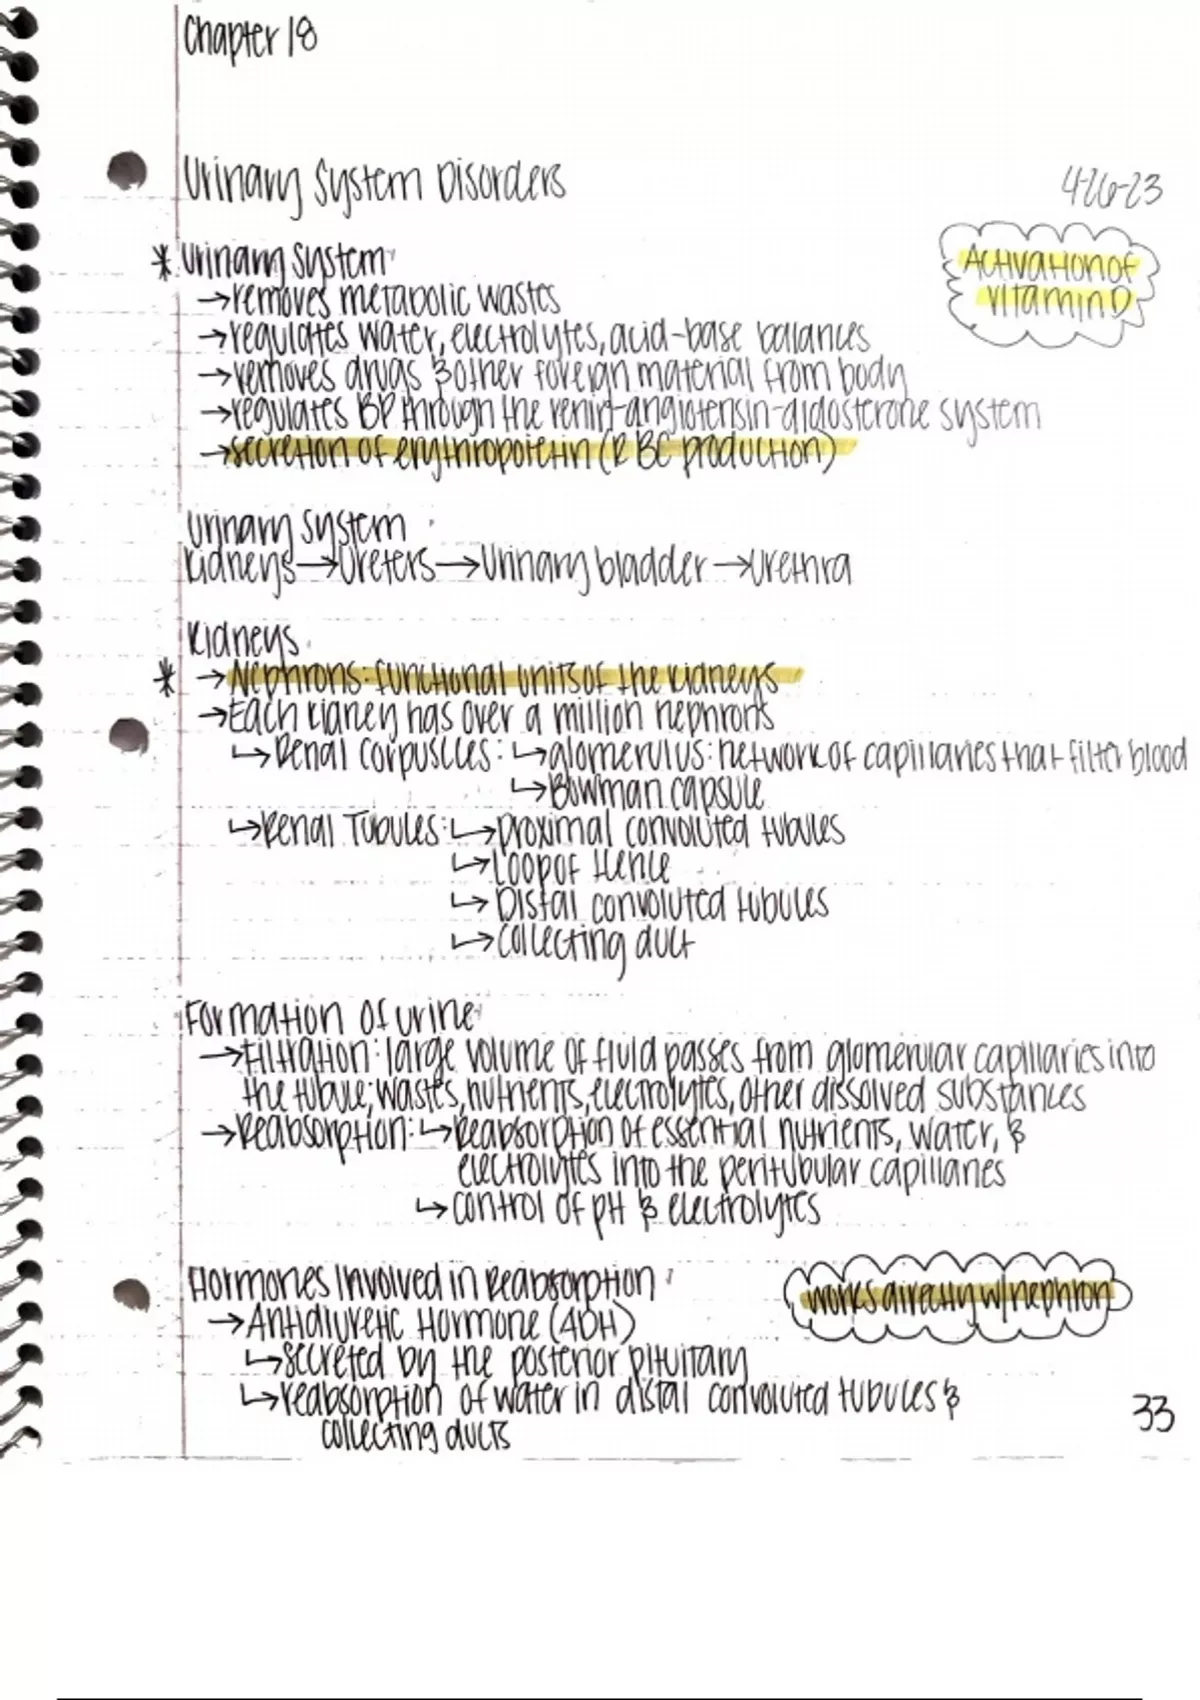 Chapter 18
Urinary System Disorders
4-26-23
* Urinary System
→removes metabolic wastes
→regulates water, electrolytes, acid-base balances
→removes drugs & other foreign material from body
→regulates BP through the renin-angiotensin-aldosterone system
→secretion of erythropoietin (RBC production)
Activation of
vitamin D
Urinary System
Kidneys→Ureters→Urinary bladder→Urethra
Kidneys
* →Nephrons: functional units of the kidneys
→Each kidney has over a million nephrons
↳Renal Corpuscles: ↳glomerulus: network of capillaries that filter blood
↳Bowman capsule
↳Renal Tubules: ↳proximal convoluted tubules
↳Loop of Henle
↳Distal convoluted tubules
↳collecting duct
Formation of urine
→Filtration: large volume of fluid passes from glomerular capillaries into
the tubule; wastes, nutrients, electrolytes, other dissolved substances
→Reabsorption: ↳Reabsorption of essential nutrients, water, &
electrolytes into the peritubular capillaries
↳control of pH & electrolytes
Hormones Involved in Reabsorption
works directly w/ nephron
→Antidiuretic Hormone (ADH)
↳secreted by the posterior pituitary
↳reabsorption of water in distal convoluted tubules &
collecting ducts
33